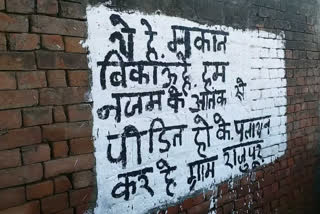 ये है मकान
बिकाऊ है, हम
नजम के आतंक से
पीडित हो के पलायन
कर रहे ग्राम राजुपूर